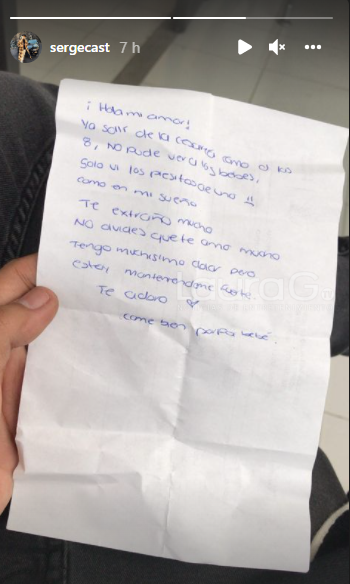 sergecast 7 h
¡Hola mi amor!
Ya salí de la cesarea como a las
8, NO pude ver a los bebés,
solo vi los piesitos de uno
como en mi sueño
Te extraño mucho
NO olvides que te amo mucho
Tengo muchisimo dolor pero
estoy manteniendome fuerte!
Te adoro
come bien papá bebé.
LauraG.